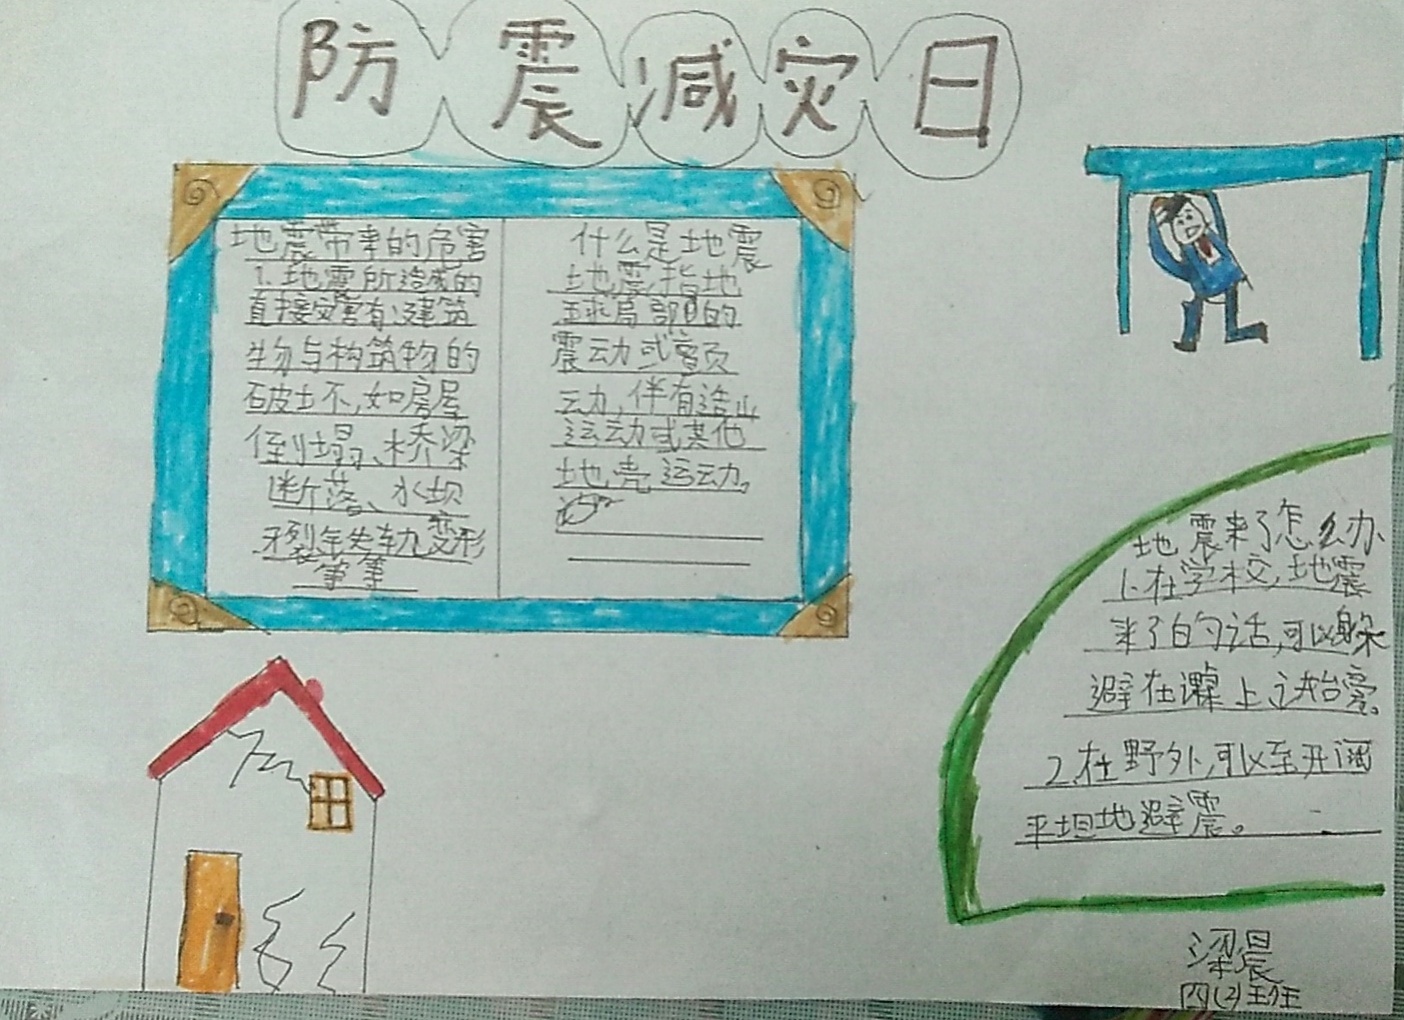 防震减灾日
地震带来的危害
1.地震所造成的
直接灾害有:建筑
物与构筑物的
破坏,如房屋
倒塌、桥梁
断落、水坝
裂 变形
等等
什么是地震
地震指地
球局部的
震动或
动,伴有造山
运动或其他
地壳运动。
地震来了怎么办
1.在学校,地震
来了的话,可以躲
避在课桌
2.在野外,可以至开阔
平坦地避震。
梁晨
四(2)班